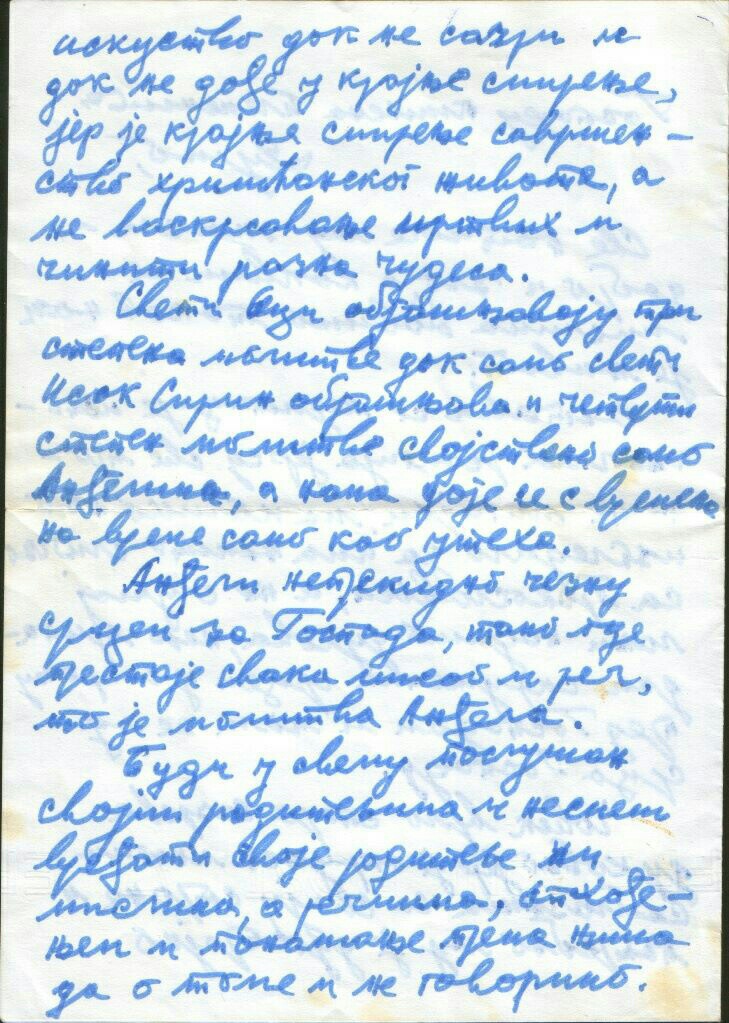 искуство док не сазри и
док не дође у крајње смирење,
јер је крајње смирење савршен-
ство хришћанског живота, а
не васкрсавање мртвих и
чинити разна чудеса.
Свети Оци објашњавају три
степена молитве док само свети
Исак Сирин објашњава и четврти
степен молитве својствено само
Анђелима, а нама даје се с времена
на време само као утеха.
Анђели непрекидно чезну
срцем за Господа, тамо где
престаје свака мисао и реч,
то је молитва Анђела.
Буди у свему послушан
својим родитељима и несмеш
вређати своје родитеље ни
мислима, а речима, опхође-
њем и понашање према њима
да о томе и не говоримо.